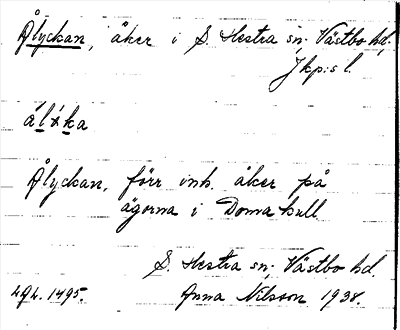 Ålyckan, åker i S. Hestra sn; Västbo hd.
Jkp:s l.
Ålyckan, förr inh. åker på
ägorna i Doma kull
S. Hestra sn; Västbo hd.
Anna Nilsson 1938.